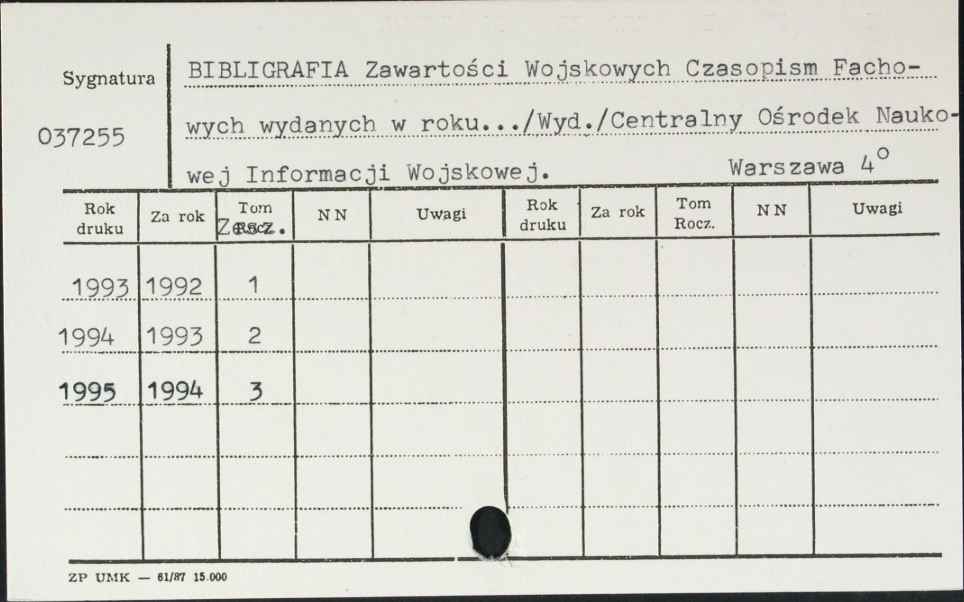 Sygnatura
BIBLIGRAFIA Zawartości Wojskowych Czasopism Facho-
037255
wych wydanych w roku.../Wyd./Centralny Ośrodek Nauko-
wej Informacji Wojskowej. Warszawa 4°
Rok druku Za rok Tom Rocz. Zesz. NN Uwagi Rok druku Za rok Tom Rocz. NN Uwagi
1993 1992 1
1994 1993 2
1995 1994 3
ZP UMK — 61/87 15.000